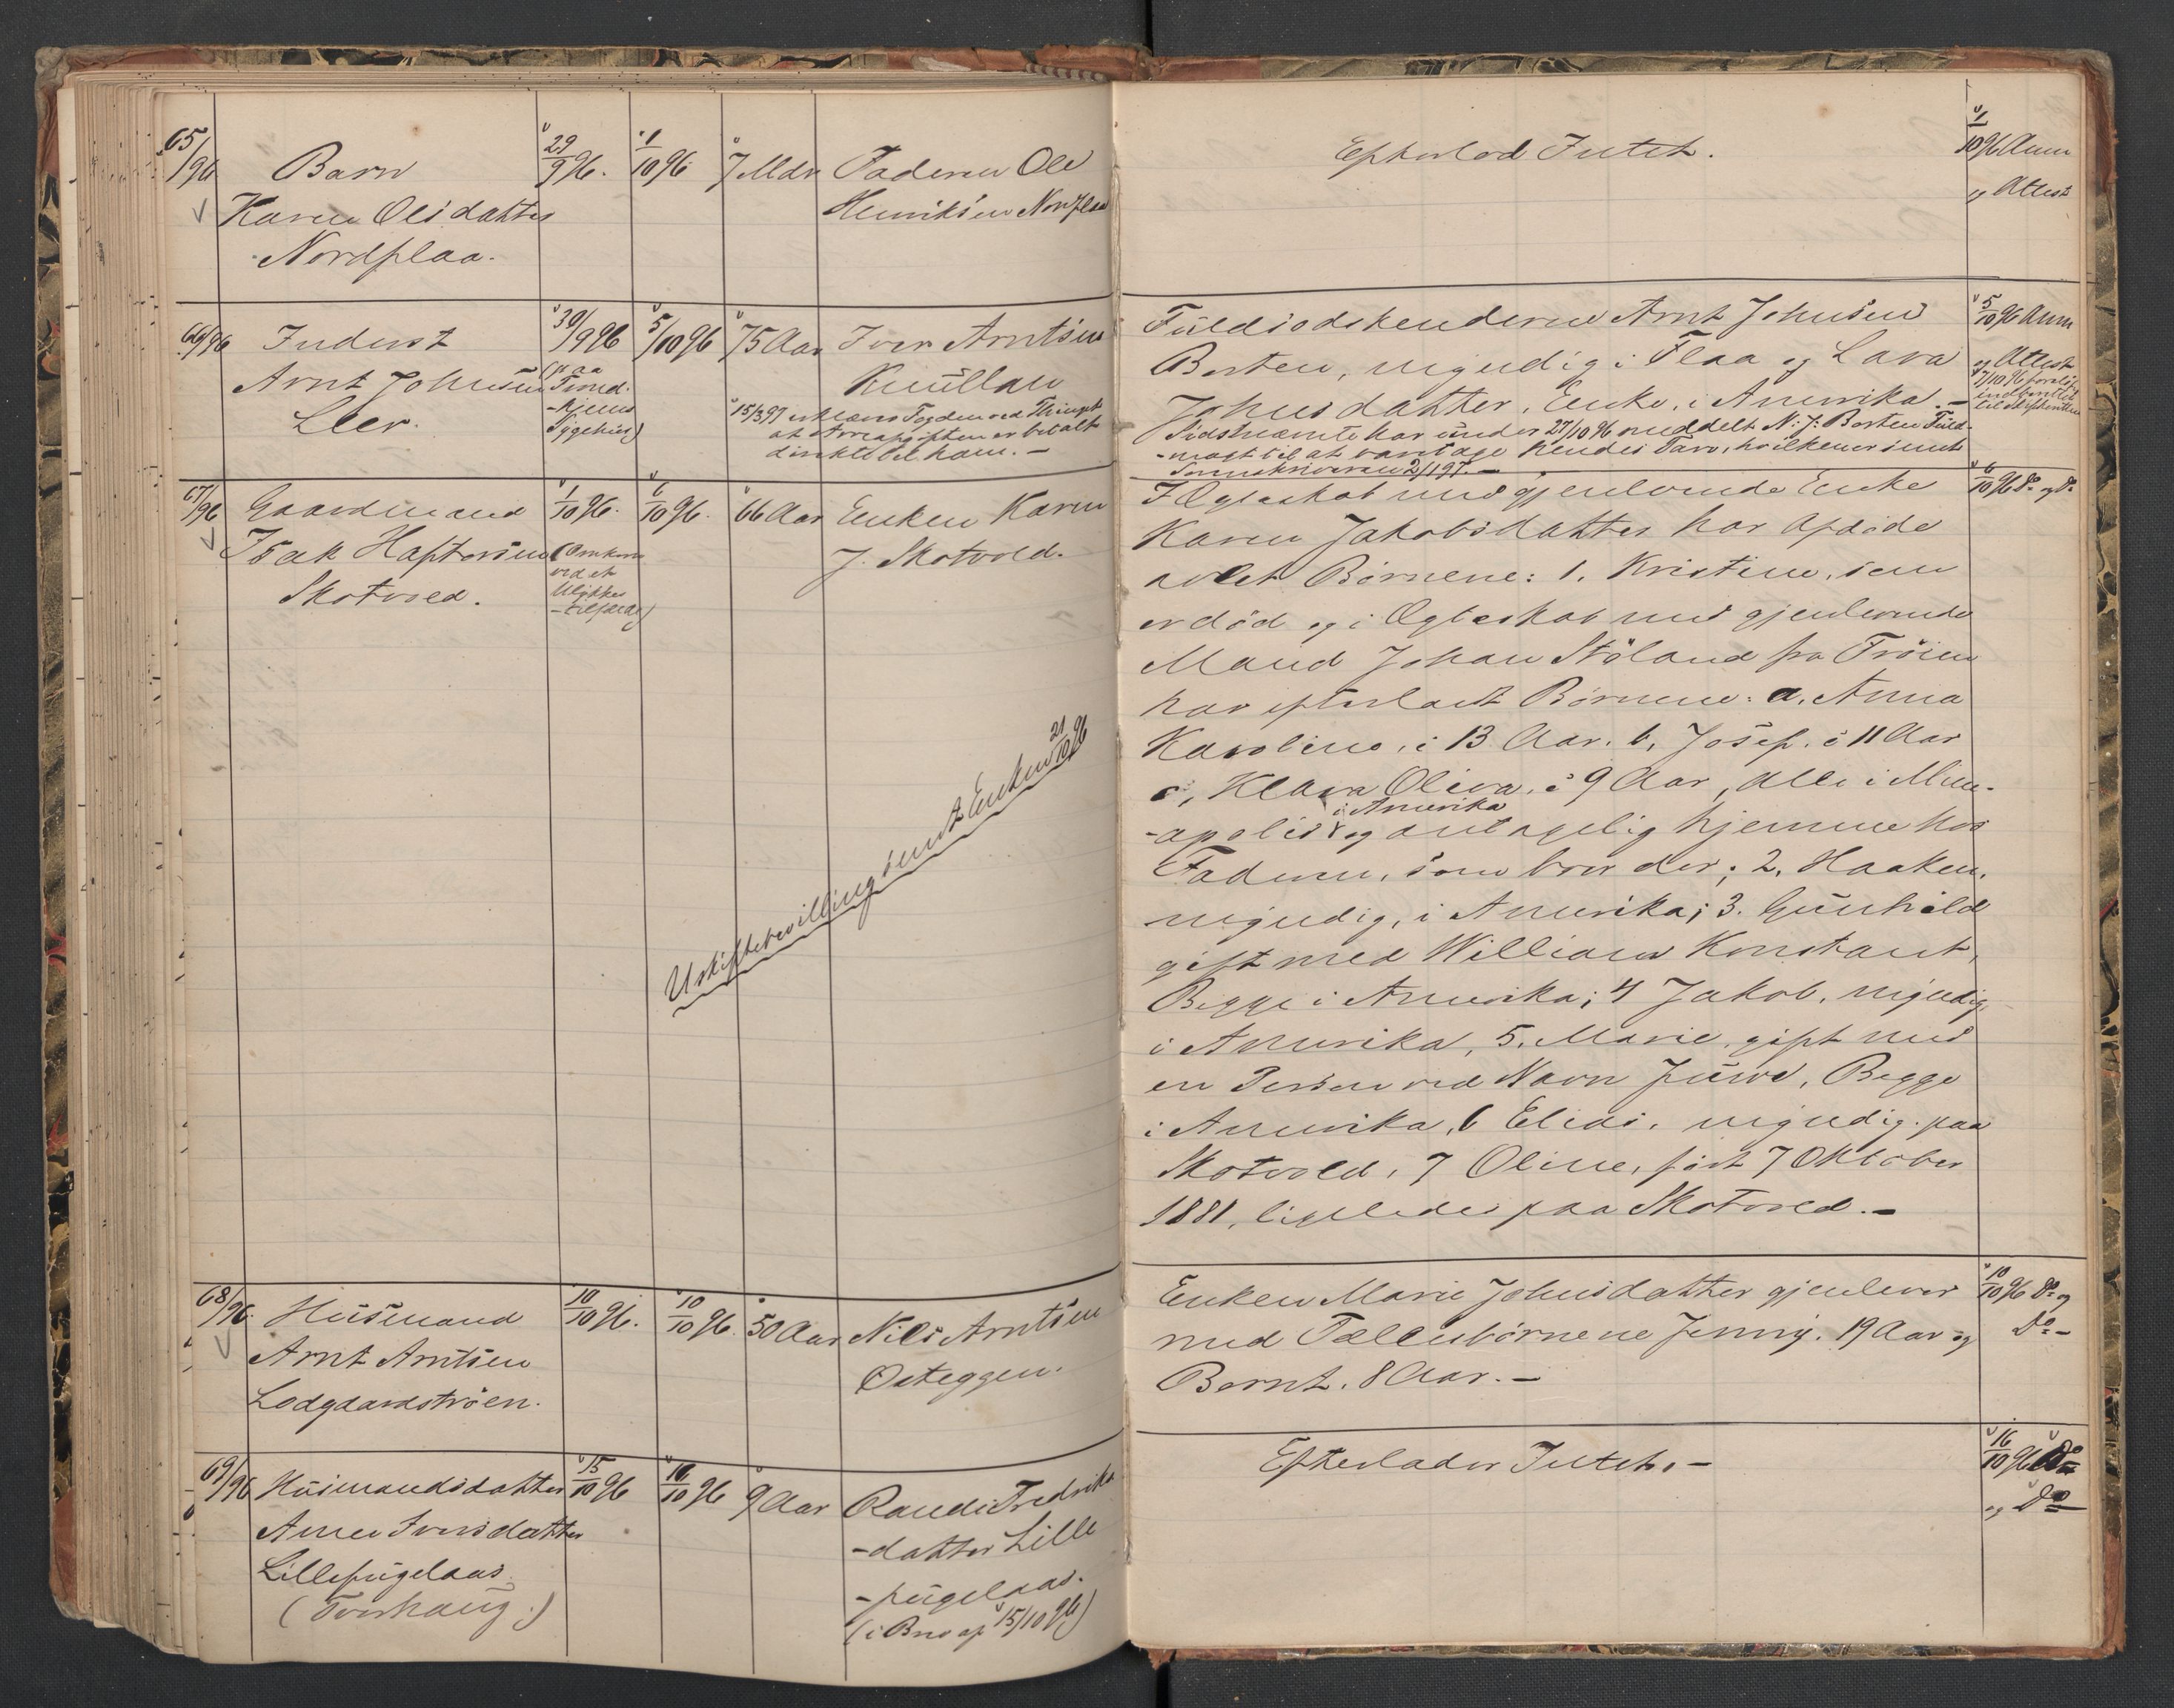 65/96 Barn 29/9 96. 1/10 96 7 Mdr Faderen Ole
Karen Olsdatter Henriksen Nordflaa
Nordflaa.
66/96 Inderst 30/9 96 5/10 96 75 Aar Iver Arntsen
Arnt Johnsen (paa Trond- Knullan
Leer. -hjems
Sygehus)
15/3 97 erklærer Fogden ved Thinget
at Arveafgiften er betalt
direkte til ham. -
67/96 Gaardmand 1/10 96. 6/10 96. 66 Aar Enken Karen
Isak Haftorsen (Omkom J. Skotvold.
Skotvold. ved et
Ulykkes
-tilfælde)
Uskiftebevilling sendt Enken 21/10 96
68/96. Husmand 10/10 96. 10/10 96. 50 Aar Nils Arntsen
Arnt Arntsen Osteggen.
Lodgaardstrøen.
69/96 Husmandsdatter 15/10 96 16/10 96 9 Aar Randi Fredrik
Ane Iversdatter -datter Lille
Lillefuglaas -fuglaas.
(Tverhaug.) (i Brev af 15/10 96)
Efterlod Intet. 1/10 96 Anm
og Attest
Fuldsødskenderne Arnt Johnsen 5/10 96 Anm
Borten, myndig i Flaa og Lava og Attest
Johnsdatter, Enke, i Amerika. -
Sidstnævnte har under 27/10 96 meddelt N: J: Borten Fuld-
-magt til at varetage hendes Tarv, hvilken er sendt
Sorenskriveren 2/1 97. -
I Ægteskab med gjenlevende Enke 6/10 96 Do og Do
Karen Jakobsdatter har Afdøde
avlet Børnene: 1. Kristine, som
er død og i Ægteskab med gjenlevende
Mand Johan Støland fra Frøien
har efterladt Børnene: a. Anna
Karoline, i 13 Aar. b, Josef, i 11 Aar
c, Klara Oliva, i 9 Aar, alle i Mine-
i Amerika
-apolis og antagelig hjemme hos
Faderen, som bor der; 2. Haaken,
myndig, i Amerika; 3. Gunhild
gift med William Konstant,
Begge i Amerika; 4 Jakob, myndig,
i Amerika, 5. Marie, gift med
en Person ved Navn Juwe, Begge
i Amerika, 6 Elias, myndig. paa
Skotvold, 7 Oline, født 7 Oktober
1881, ligeledes paa Skotvold. -
Enken Marie Johnsdatter gjenlever 10/10 96 Do og
med Fællesbørnene Jenny. 19 Aar og Do -
Bernt. 8 Aar. -
Efterlader Intet. - 16/10 96 Do
og Do